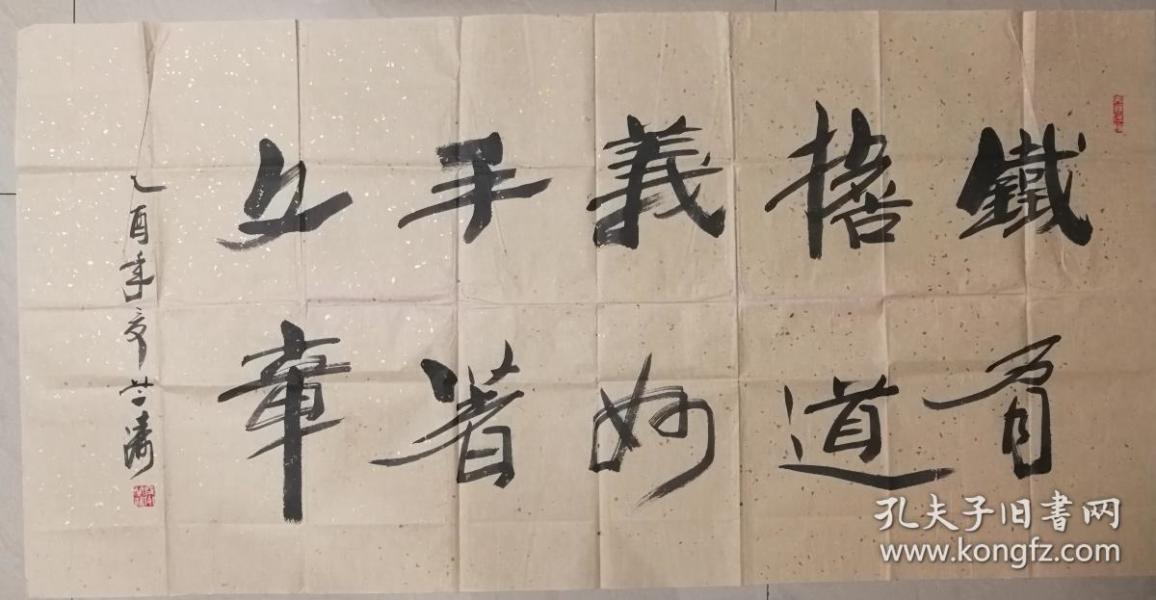 鐵肩
擔道
義妙
手著
文章
乙酉年
孔夫子旧書网
www.kongfz.com